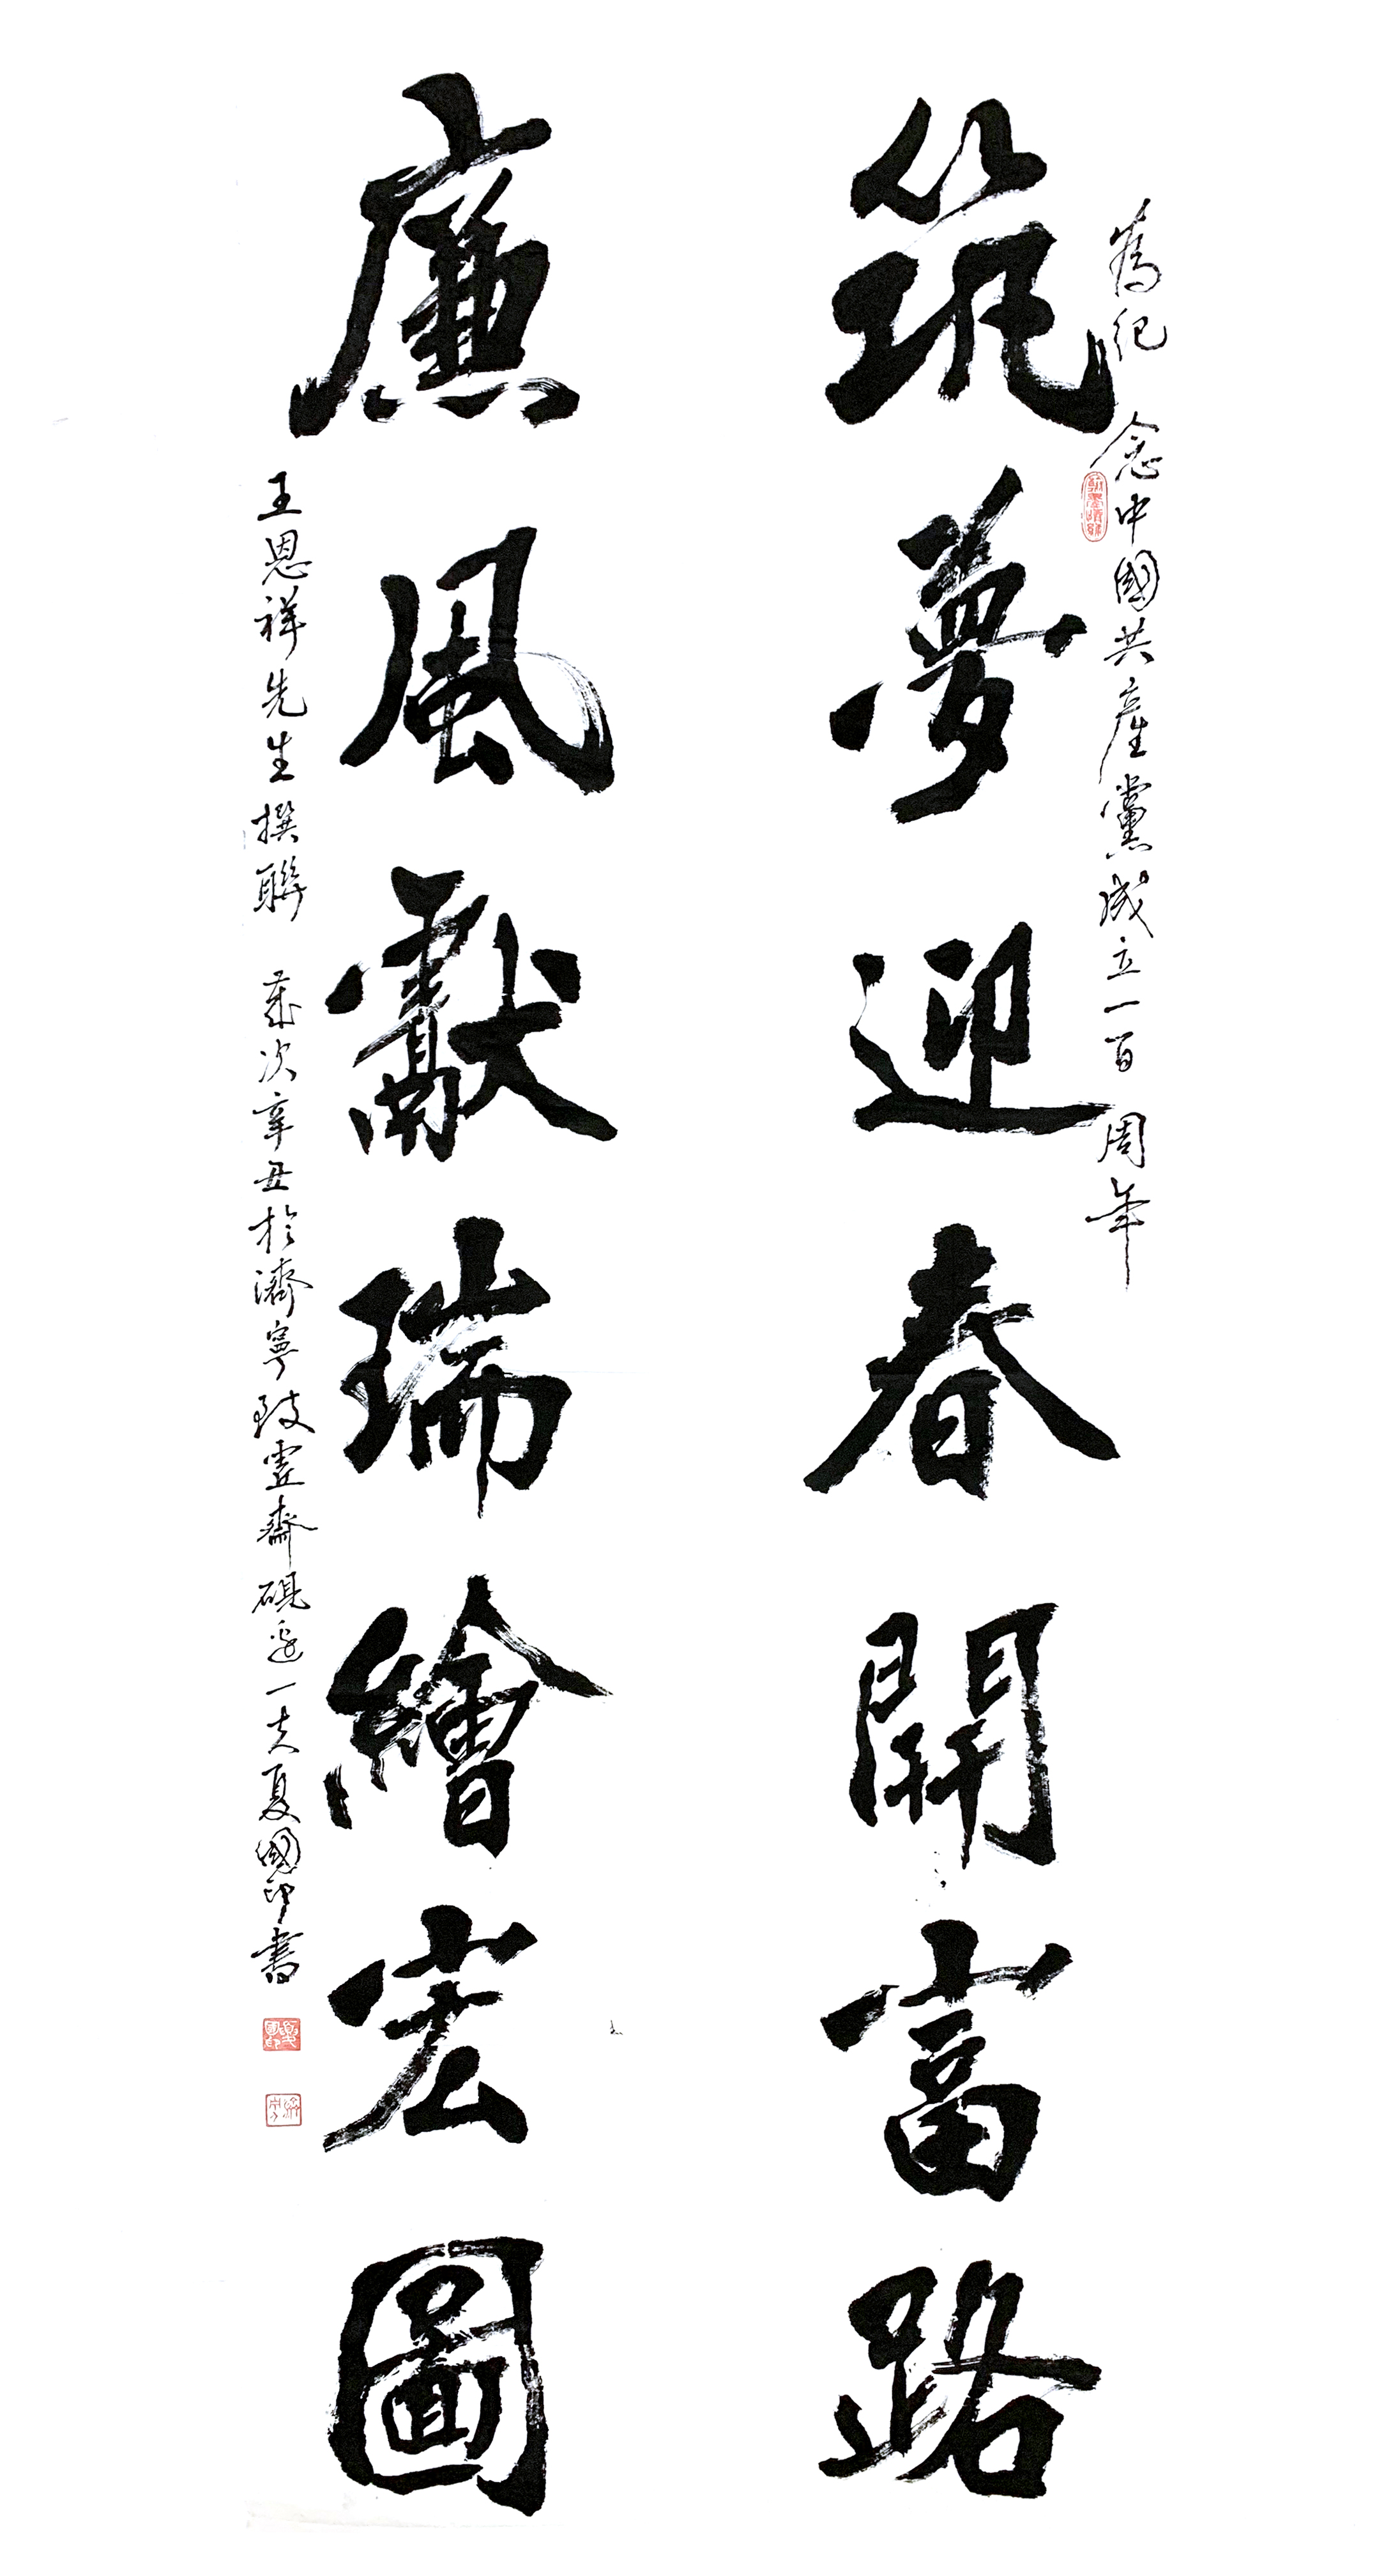 為紀念中國共產黨成立一百周年
筑夢迎春開富路
廉風獻瑞繪宏圖
王恩祥先生撰聯 歲次辛丑於濟寧致虛齋硯邊一夫夏國印書
夏國印